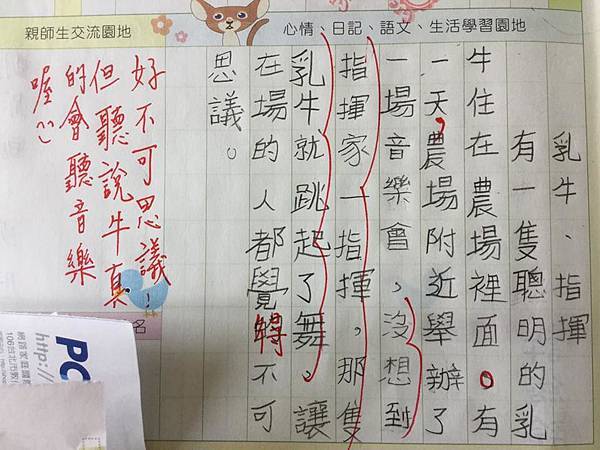 心情、日記、語文、生活學習園地
乳牛、指揮
有一隻聰明的乳
牛住在農場裡面。有
一天,農場附近舉辦了
一場音樂會,沒想到
指揮家一指揮,那隻
乳牛就跳起了舞。讓
在場的人都覺得不可
思議。
親師生交流園地
好不可思議!
但聽說牛真
的會聽音樂
喔
名
PC
網路家庭
http://
106台北市